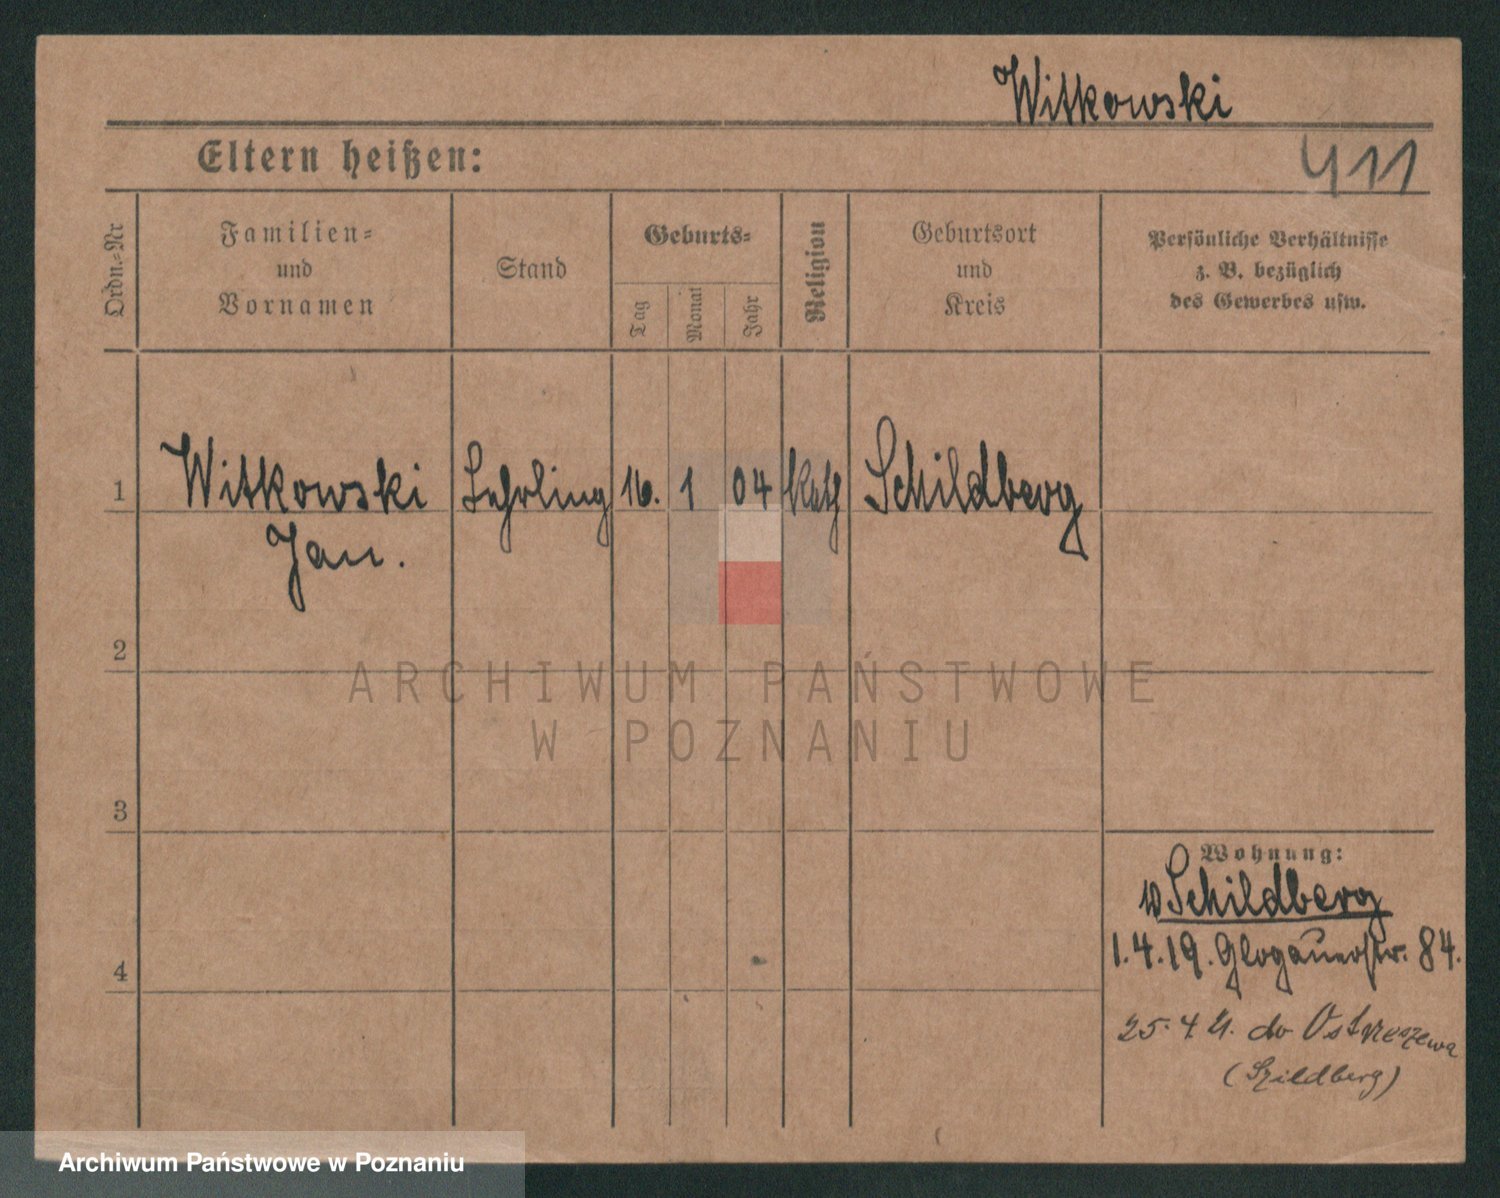 Witkowski
Eltern heißen:
411
Ordn.-Nr
Familien-
und
Vornamen
Stand
Geburts-
Tag
Monat
Jahr
Religion
Geburtsort
und
Kreis
Persönliche Verhältnisse
z. B. bezüglich
des Gewerbes usw.
1
Witkowski
Jan.
Lehrling
16.
1
04
Kath
Schildberg
2
ARCHIWUM PAŃSTWOWE
W POZNANIU
3
Wohnung:
Schildberg
1.4.19. Glogauerstr. 84.
4
25.4 21. do Ostrzeszewa
(Szildberg)
Archiwum Państwowe w Poznaniu